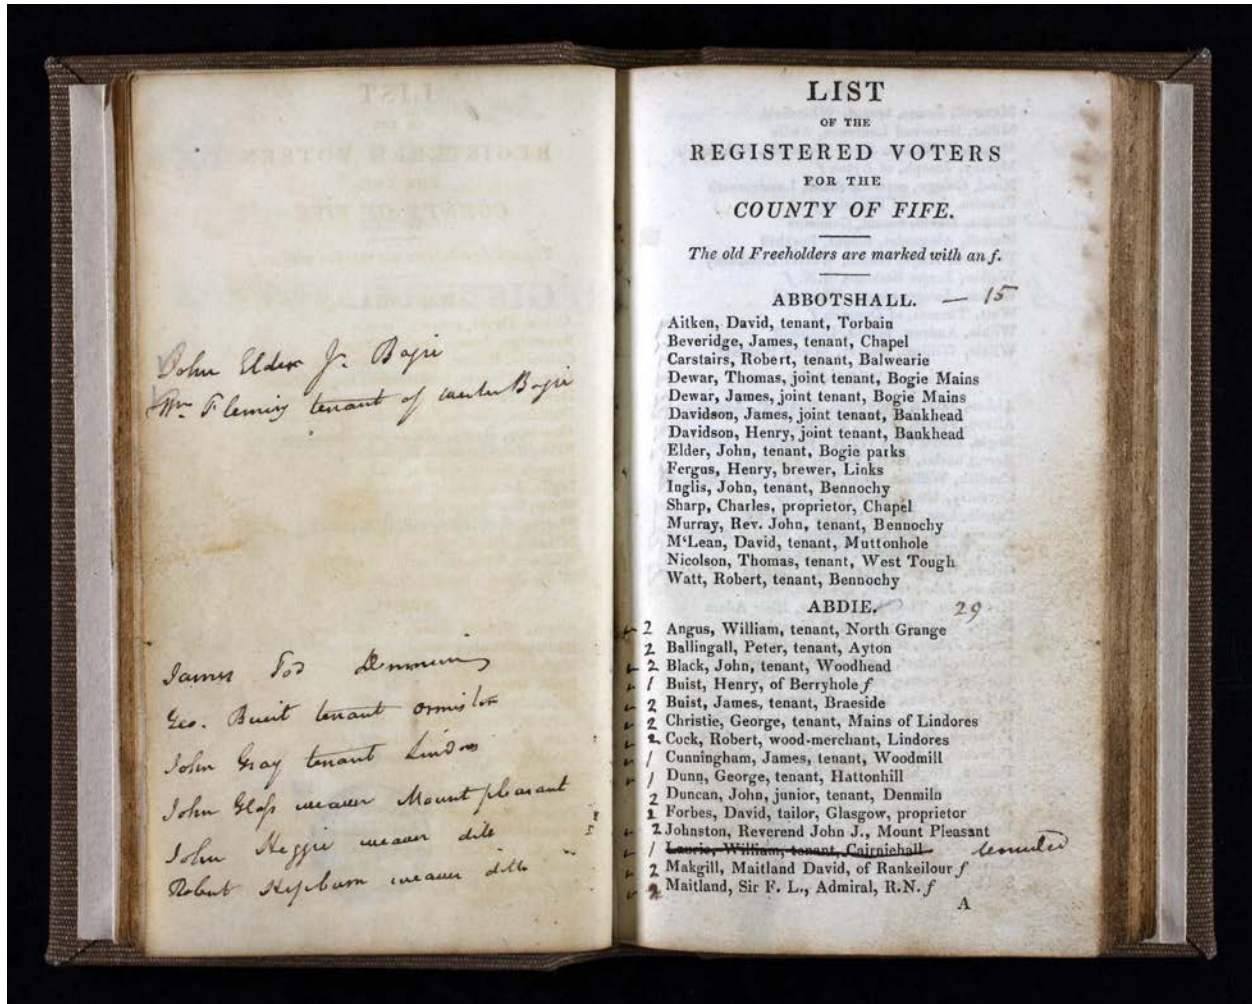 John Elder Jr. Bogie
Wm Fleming tenant of Bogie
James Tod Denmuir
Geo. Buist tenant Ormiston
John Gray tenant Lindores
John Glass weaver Mount pleasant
John Heggie weaver ditto
Robert Hepburn weaver ditto
LIST
OF THE
REGISTERED VOTERS
FOR THE
COUNTY OF FIFE.
The old Freeholders are marked with an f.
ABBOTSHALL. — 15
Aitken, David, tenant, Torbain
Beveridge, James, tenant, Chapel
Carstairs, Robert, tenant, Balwearie
Dewar, Thomas, joint tenant, Bogie Mains
Dewar, James, joint tenant, Bogie Mains
Davidson, James, joint tenant, Bankhead
Davidson, Henry, joint tenant, Bankhead
Elder, John, tenant, Bogie parks
Fergus, Henry, brewer, Links
Inglis, John, tenant, Bennochy
Sharp, Charles, proprietor, Chapel
Murray, Rev. John, tenant, Bennochy
M‘Lean, David, tenant, Muttonhole
Nicolson, Thomas, tenant, West Tough
Watt, Robert, tenant, Bennochy
ABDIE. 29
2 Angus, William, tenant, North Grange
2 Ballingall, Peter, tenant, Ayton
2 Black, John, tenant, Woodhead
1 Buist, Henry, of Berryhole f
2 Buist, James, tenant, Braeside
2 Christie, George, tenant, Mains of Lindores
2 Cock, Robert, wood-merchant, Lindores
1 Cunningham, James, tenant, Woodmill
1 Dunn, George, tenant, Hattonhill
2 Duncan, John, junior, tenant, Denmiln
2 Forbes, David, tailor, Glasgow, proprietor
2 Johnston, Reverend John J., Mount Pleasant
1 Laurie, William, tenant, Cairniehall
2 Makgill, Maitland David, of Rankeilour f
2 Maitland, Sir F. L., Admiral, R.N. f
A